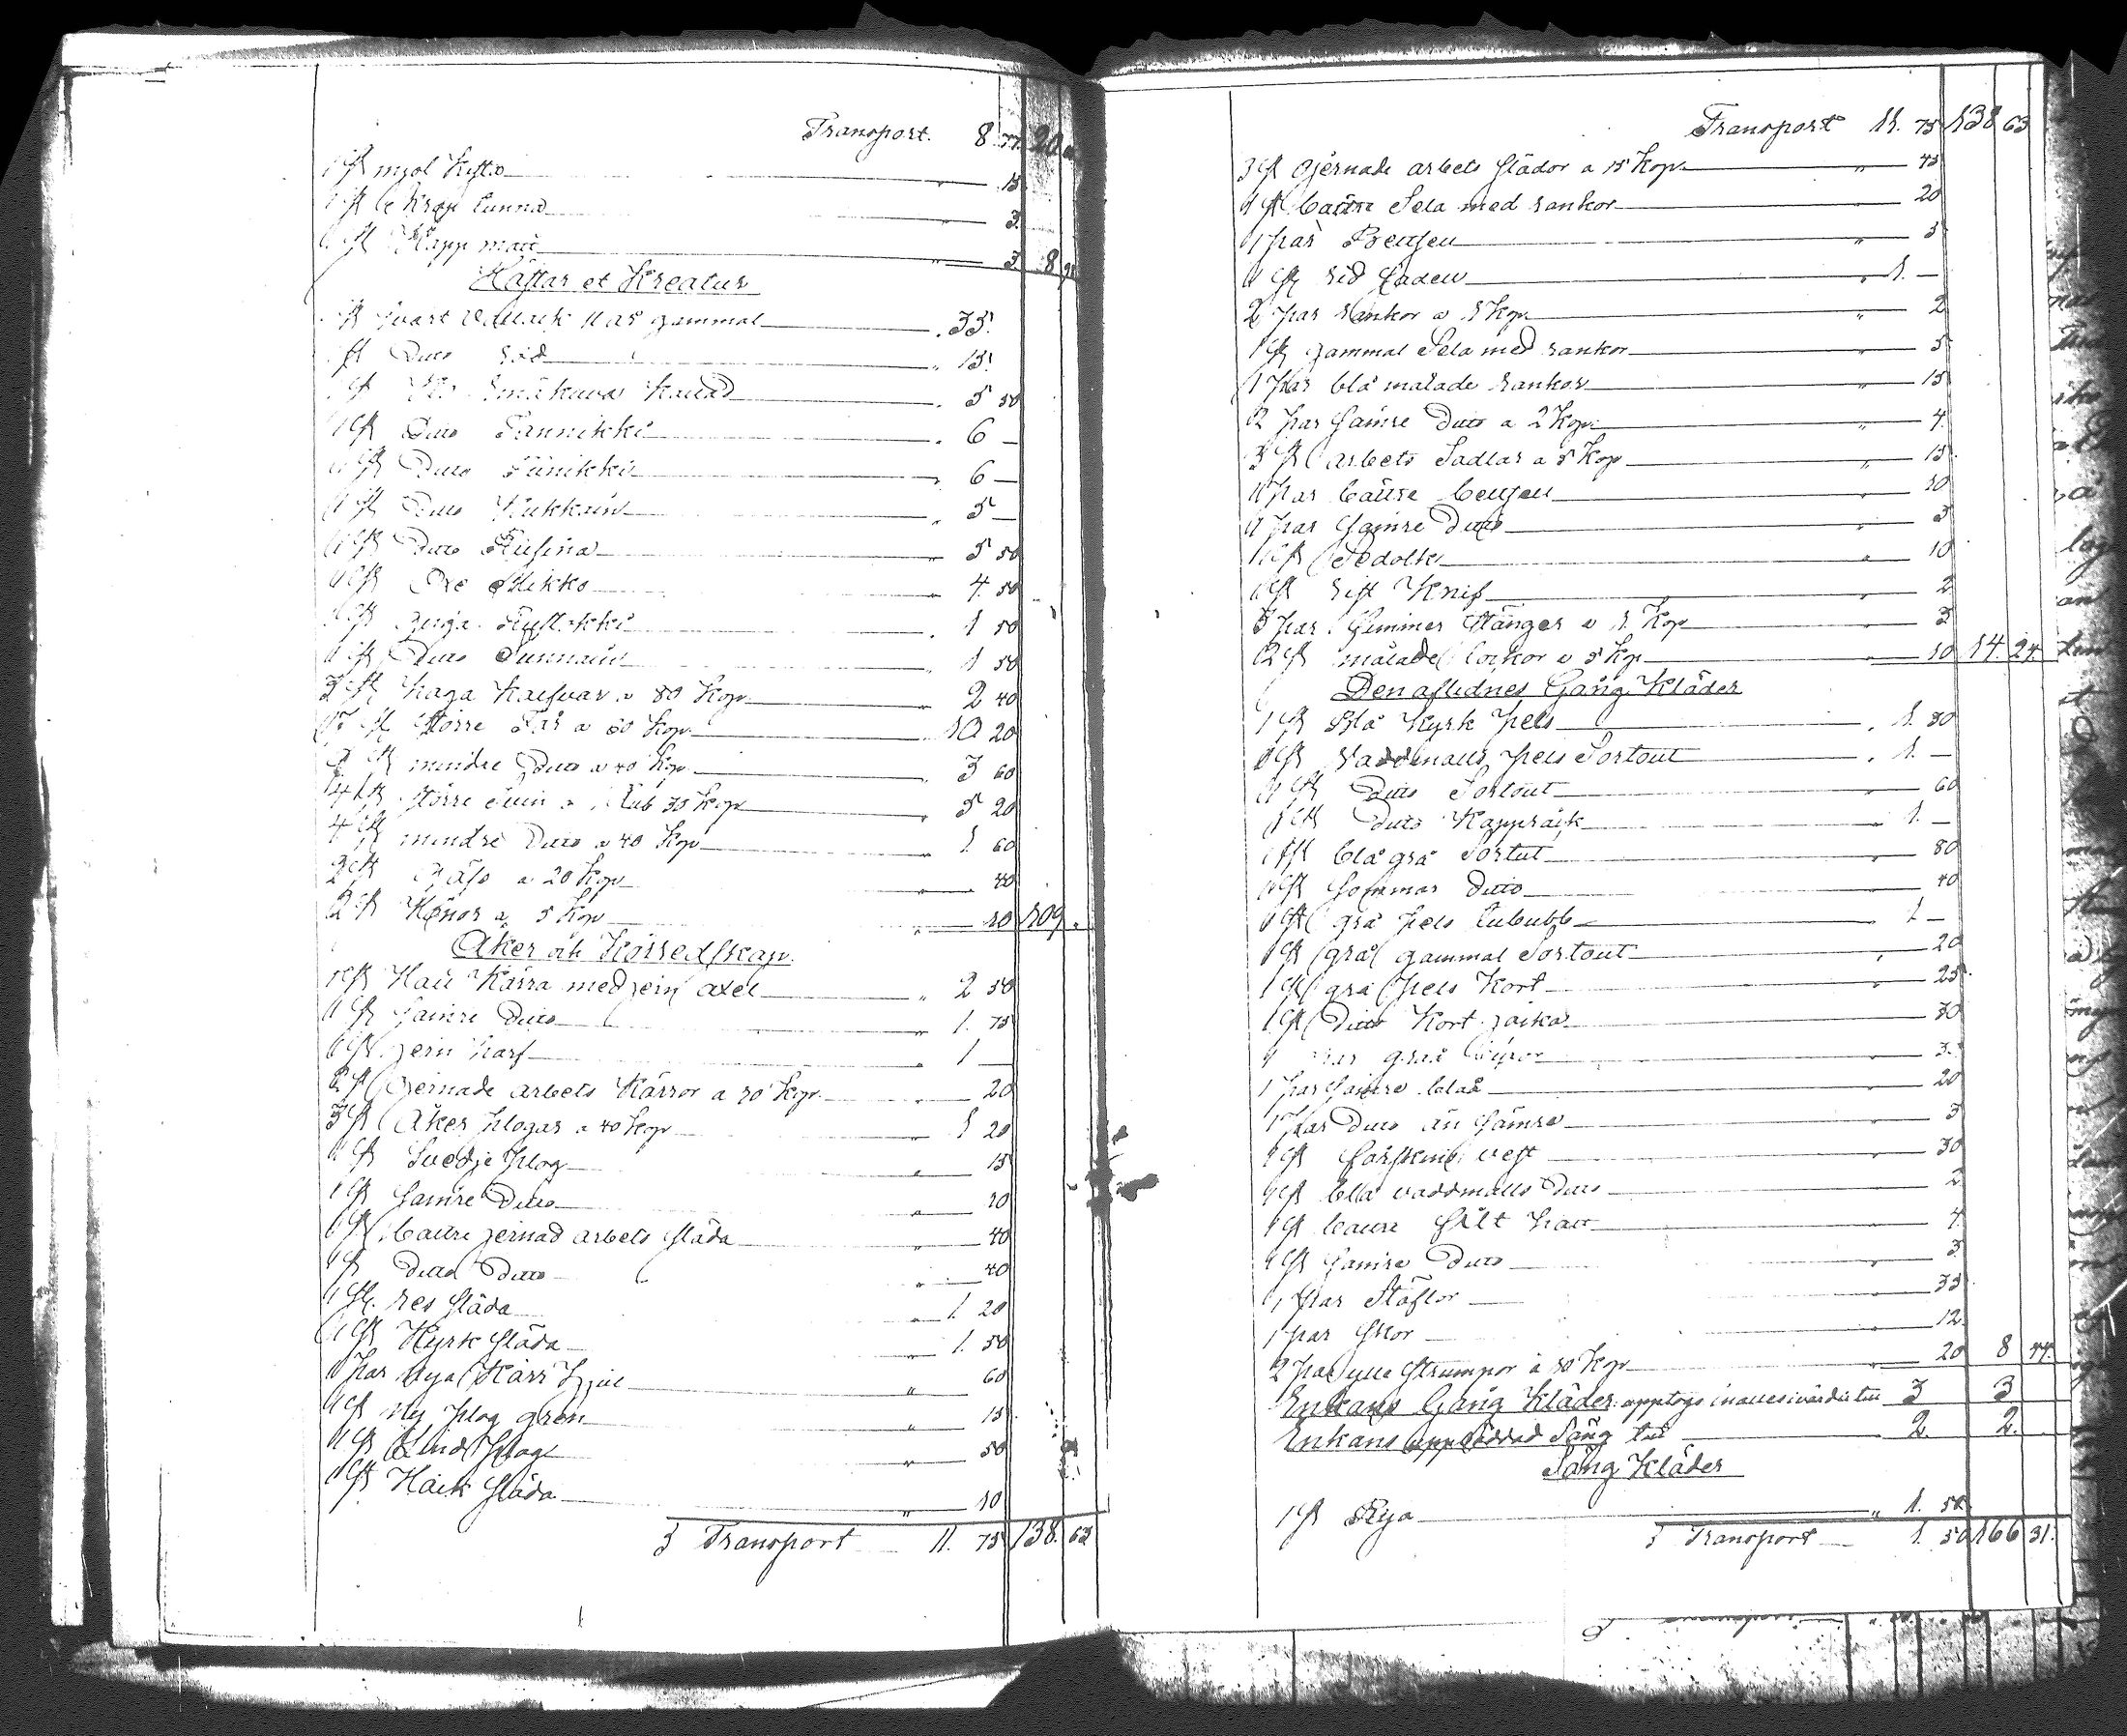 Transport. 8 77 20
1 st mjöl Kytto " 15
1 st Skrap tunna " 3
1 st Kapp mått " 3 8 98
Hästar et Kreatur
1 st svart Vallack 11 år gammal " 35
1 st Ditto röd " 15
1 st Ko Småkuva Kallad " 5 50
1 st Ditto Pännikki " 6 —
1 st Ditto Tiinikki " 6 —
1 st Ditto Kukkain " 5 —
1 st Ditto Rusina " 5 50
1 st Oxe Mikko " 4 50
1 st quiga " 1 50
1 st Ditto " 1 50
3 st Kalfvar a 80 Kop " 2 40
17 st större Får a 60 Kop 10 20
9 st mindre Ditto a 40 Kop 3 60
4 st större Svin a 1 Rub 30 Kop 5 20
4 st mindre Ditto a 40 Kop 1 60
2 st Gäss a 20 Kop 40
2 st Hönor a 5 Kop 10 109
Åker och Körredskap
1 st Kärra med jern axel " 2 50
1 st sämre Ditto " 1. 75
1 st jern harf " 1 —
2 st jernade arbets Kärror a 10 Kop 20
3 st Åker plogar a 40 Kop 1 20
1 st Svedje plog 15
1 st sämre Ditto 10
1 st bättre jernad arbets släda 40
1 st Ditto Ditto 40
1 st res släda 1. 20
1 st Kyrk släda 1. 50
1 par nya Kärr hjul 60
1 st ny plog gren 15
1 st Lind plog 50
1 st Häck släda 10
S Transport 11. 75 138. 63
Transport 11. 75 138 63
3 st jernade arbets slädor a 15 Kop " 45
1 st bättre Sela med rankor 20
1 par " 5
1 st rid sadel " 1. —
2 par rankor a 1 Kop " 2
1 st gammal Sela med rankor " 5
1 par blå målade rankor " 15
2 par sämre Ditto a 2 Kop " 4
3 st arbets Sadlar a 5 Kop " 15
1 par bättre 10
1 par sämre Ditto 5
1 st " 10
1 st Knif 2
3 par stänger a 1 Kop 3
2 st målade a 5 Kop 10 14. 24.
Den aflidnes Gång Kläder
1 st Blå Kyrk pels " 1. 80
1 st Vaddmalls pels Sortout " 1. —
1 st Ditto Sortout 60
1 st Ditto Kappråck 1. —
1 st blå grå Sortut 80
1 st sommar Ditto 40
1 st grå pels 1 —
1 st grå gammal Sortout 20
1 st grå pels Kort 25
1 st Ditto Kort jacka 30
1 par gråa byxor 3
1 par sämre blåa 20
1 par Ditto än sämre 3
1 st fårskins vest 30
1 st blå vaddmalls Ditto 2
1 st bättre filt hatt 4
1 st sämre Ditto 3
1 par Stöflor 35
1 par skor 12
2 par ylle strumpor à 10 Kop 20 8 44
Enkans Gång Kläder upptogs i allt i värde till 3 3
Enkans uppbäddad Säng till 2 2.
Säng Kläder
1 st Rya " 1. 50
S Transport 1. 50 166 31.